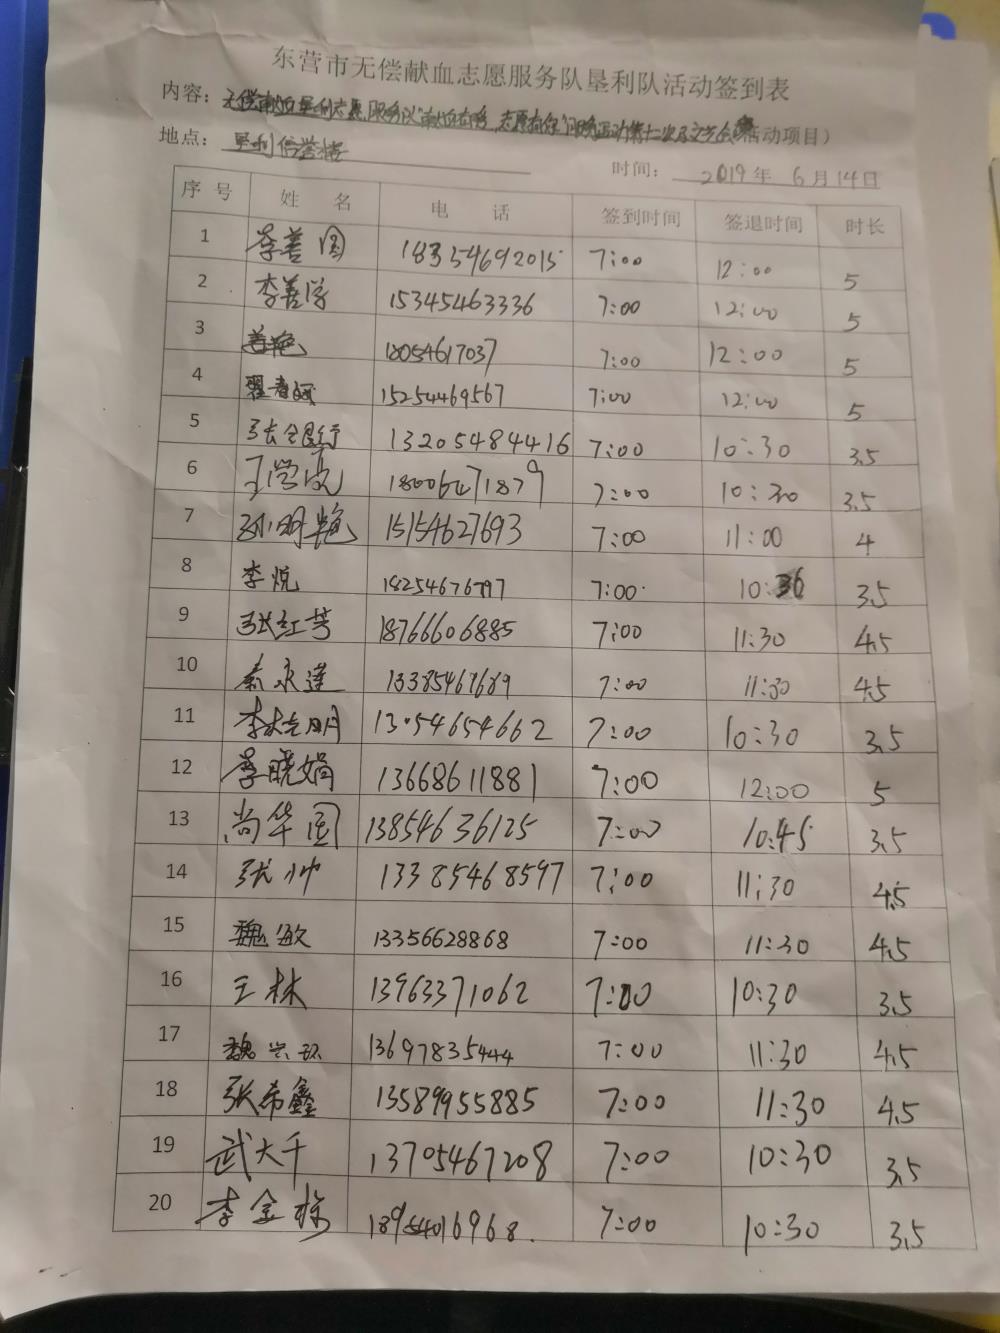 东营市无偿献血志愿服务队垦利队活动签到表
内容：无偿献血垦利志愿服务队 活动项目）
地点：垦利信誉楼 时间：2019年6月14日
序号 姓名 电话 签到时间 签退时间 时长
1 李善国 18354692015 7:00 12:00 5
2 李善学 15345463336 7:00 12:00 5
3 18054617037 7:00 12:00 5
4 15254469567 7:00 12:00 5
5 13205484416 7:00 10:30 3.5
6 王学亮 7:00 10:30 3.5
7 孙明艳 15154627693 7:00 11:00 4
8 李悦 18254676797 7:00 3.5
9 张红芳 18766606885 7:00 11:30 4.5
10 秦永莲 7:00 11:30 4.5
11 13054654662 7:00 10:30 3.5
12 李晓娟 13668611881 7:00 12:00 5
13 尚华国 13854636125 7:00 10:45 3.5
14 张帅 13385468597 7:00 11:30 4.5
15 魏敏 13356628868 7:00 11:30 4.5
16 王林 13963371062 7:00 10:30 3.5
17 13697835444 7:00 11:30 4.5
18 张希鑫 13589955885 7:00 11:30 4.5
19 武大千 13705467208 7:00 10:30 3.5
20 李金栋 7:00 10:30 3.5